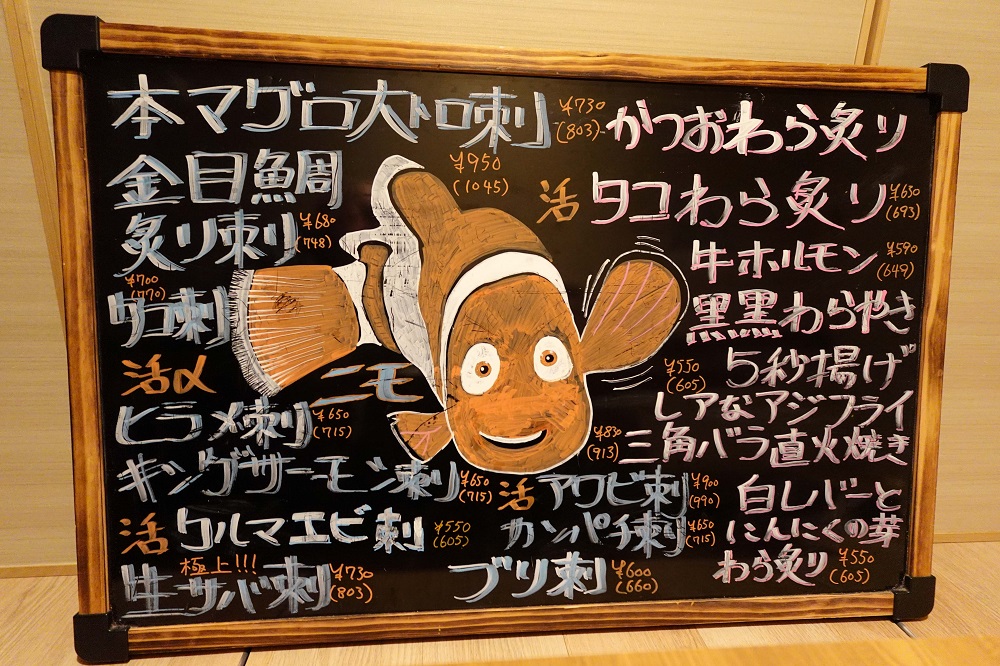 本マグロ大トロ刺 ¥730
(803)
金目鯛
¥950
(1045)
炙り刺り ¥680
(748)
¥700
(770)
タコ刺
活〆
ニモ
ヒラメ刺 ¥650
(715)
キングサーモン刺 ¥650
(715)
活 クルマエビ刺 ¥550
(605)
極上!!!
生サバ刺 ¥730
(803)
かつおわら炙り
活 タコわら炙り ¥630
(693)
牛ホルモン ¥590
(649)
黒黒わらやき
¥550
(605)
5秒揚げ
レアなアジフライ
¥830
(913)
三角バラ直火焼き
活 アワビ刺 ¥900
(990)
カンパチ刺 ¥650
(715)
ブリ刺 ¥600
(660)
白レバーと
にんにくの芽
わら炙り ¥550
(605)